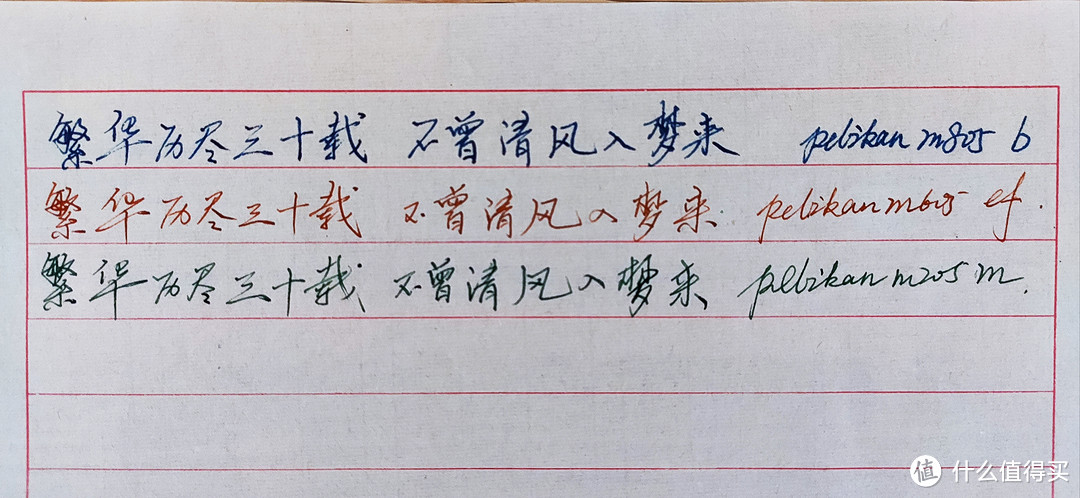 繁华历尽三十载 不曾清风入梦来 pelikan m805 b
繁华历尽三十载 不曾清风入梦来. pelikan m605 ef.
繁华历尽三十载 不曾清风入梦来. pelikan m205 m.
值 什么值得买